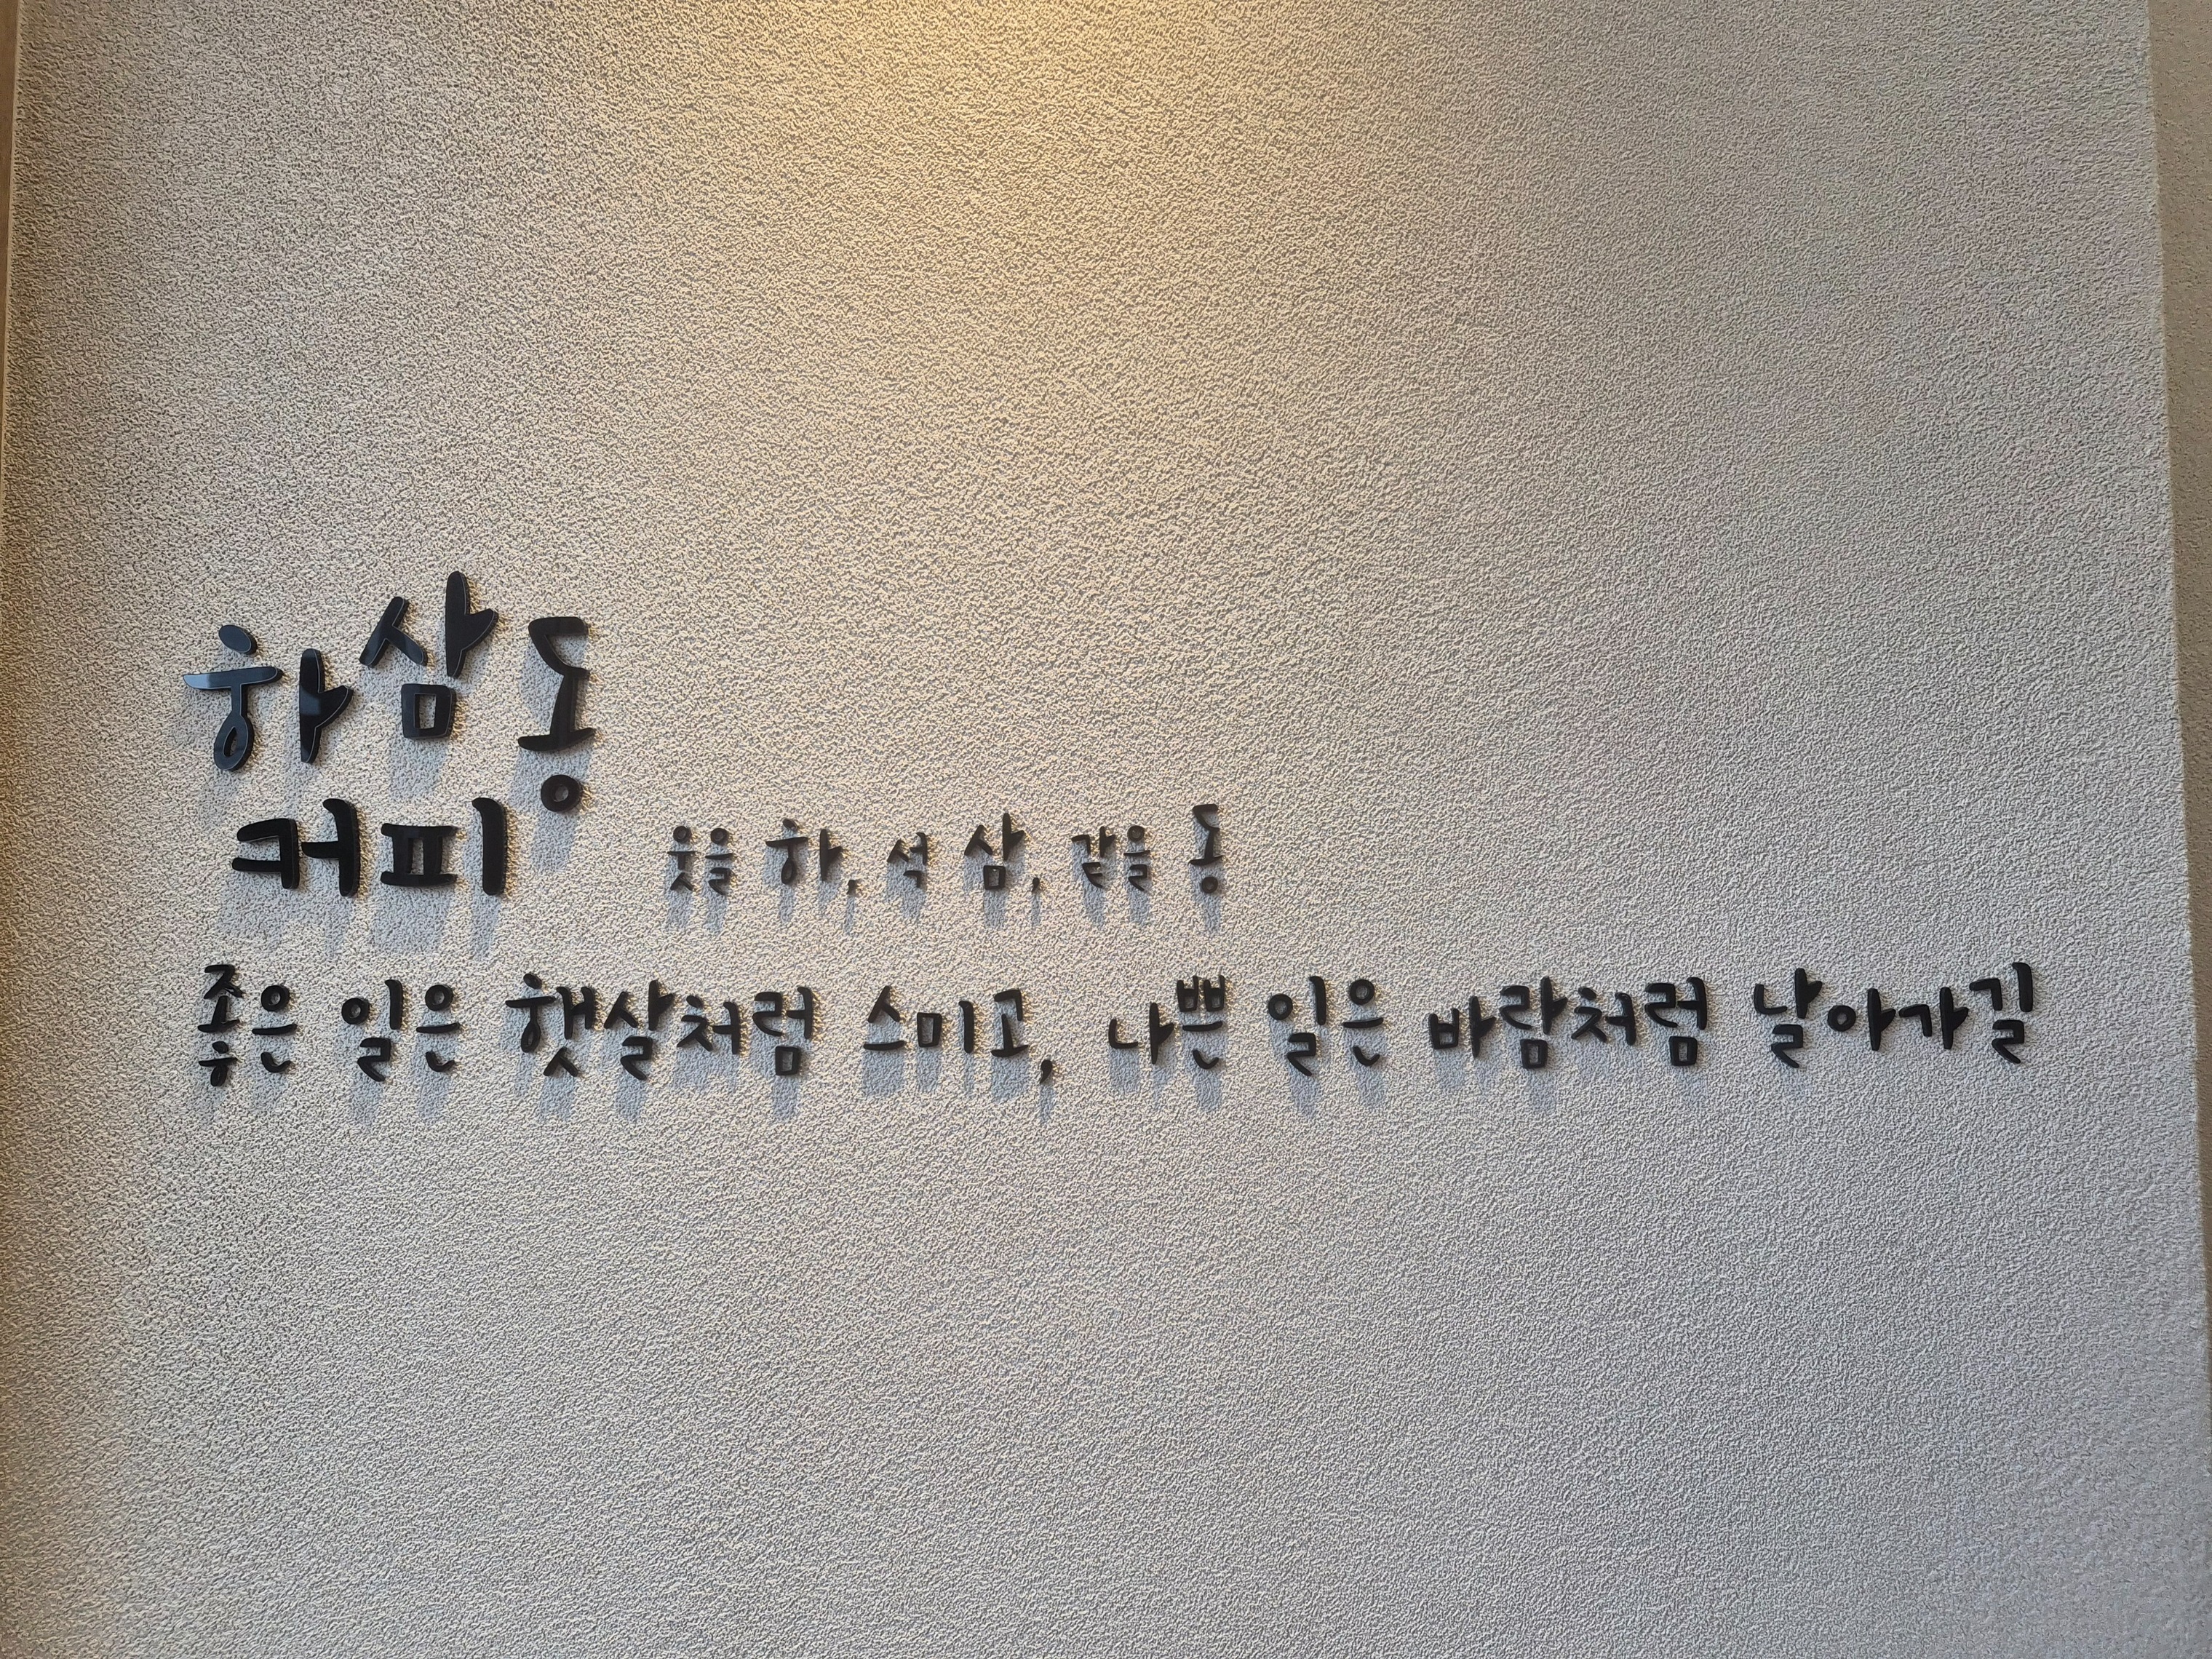 하삼동
커피
웃을 하, 석 삼, 같을 동
좋은 일은 햇살처럼 스미고, 나쁜 일은 바람처럼 날아가길